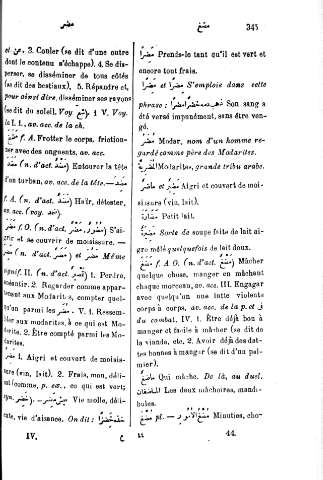 مضر
مضغ
345
et عن. 3. Couler (se dit d'une outre
dont le contenu s'échappe). 4. Se dis-
perser, se disséminer de tous côtés
(se dit des bestiaux). 5. Répandre et,
pour ainsi dire, disséminer ses rayons
(se dit du soleil. Voy. ) V. Voy.
la I., av. acc. de la ch.
f. A. Frotter le corps, friction-
ner avec des onguents, av. acc.
(n. d'act. ) Entourer la tête
d'un turban, av. acc. de la tête.
f. A. (n. d'act. ) Haïr, détester,
av. acc. (voy. ).
f. O. (n. d'act. ) S'ai-
grir et se couvrir de moisissure. —
(n. d'act. ) et Même
signif. II. (n. d'act. ) 1. Perdre,
anéantir. 2. Regarder comme appar-
tenant aux Modarites, compter quel-
qu'un parmi les مضر. V. 1. Ressem-
bler aux modarites, à ce qui est Mo-
darite. 2. Être compté parmi les Mo-
darites.
مضر 1. Aigri et couvert de moisis-
sure (vin, lait). 2. Frais, mon, déli-
cat (comme, p. ex., ce qui est vert;
syn. خضر). — Vie molle, déli-
cate, vie d'aisance. On dit: خضرا مضرا
Prends-le tant qu'il est vert et
encore tout frais.
et S'emploie dans cette
phrase: Son sang a
été versé impunément, sans être ven-
gé.
مضر Modar, nom d'un homme re-
gardé comme père des Modarites.
Modarites, grande tribu arabe.
ماضر et مضير Aigri et couvert de moi-
sissure (vin, lait).
مضارة Petit lait.
Sorte de soupe faite de lait ai-
gre mêlé quelquefois de lait doux.
مضغ f. A. O. (n. d'act. ) Mâcher
quelque chose, manger en mâchant
chaque morceau, av. acc. III. Engager
avec quelqu'un une lutte violente
corps à corps, av. acc. de la p. et
du combat. IV. 1. Être déjà bon à
manger et facile à mâcher (se dit de
la viande, etc. 2. Avoir déjà des dat-
tes bonnes à manger (se dit d'un pal-
mier).
ماضغ Qui mâche. De là, au duel.
الماضغان Les deux mâchoires, mandi-
bules.
pl. — مضغ الأمور Minuties, cho-
IV.
44.